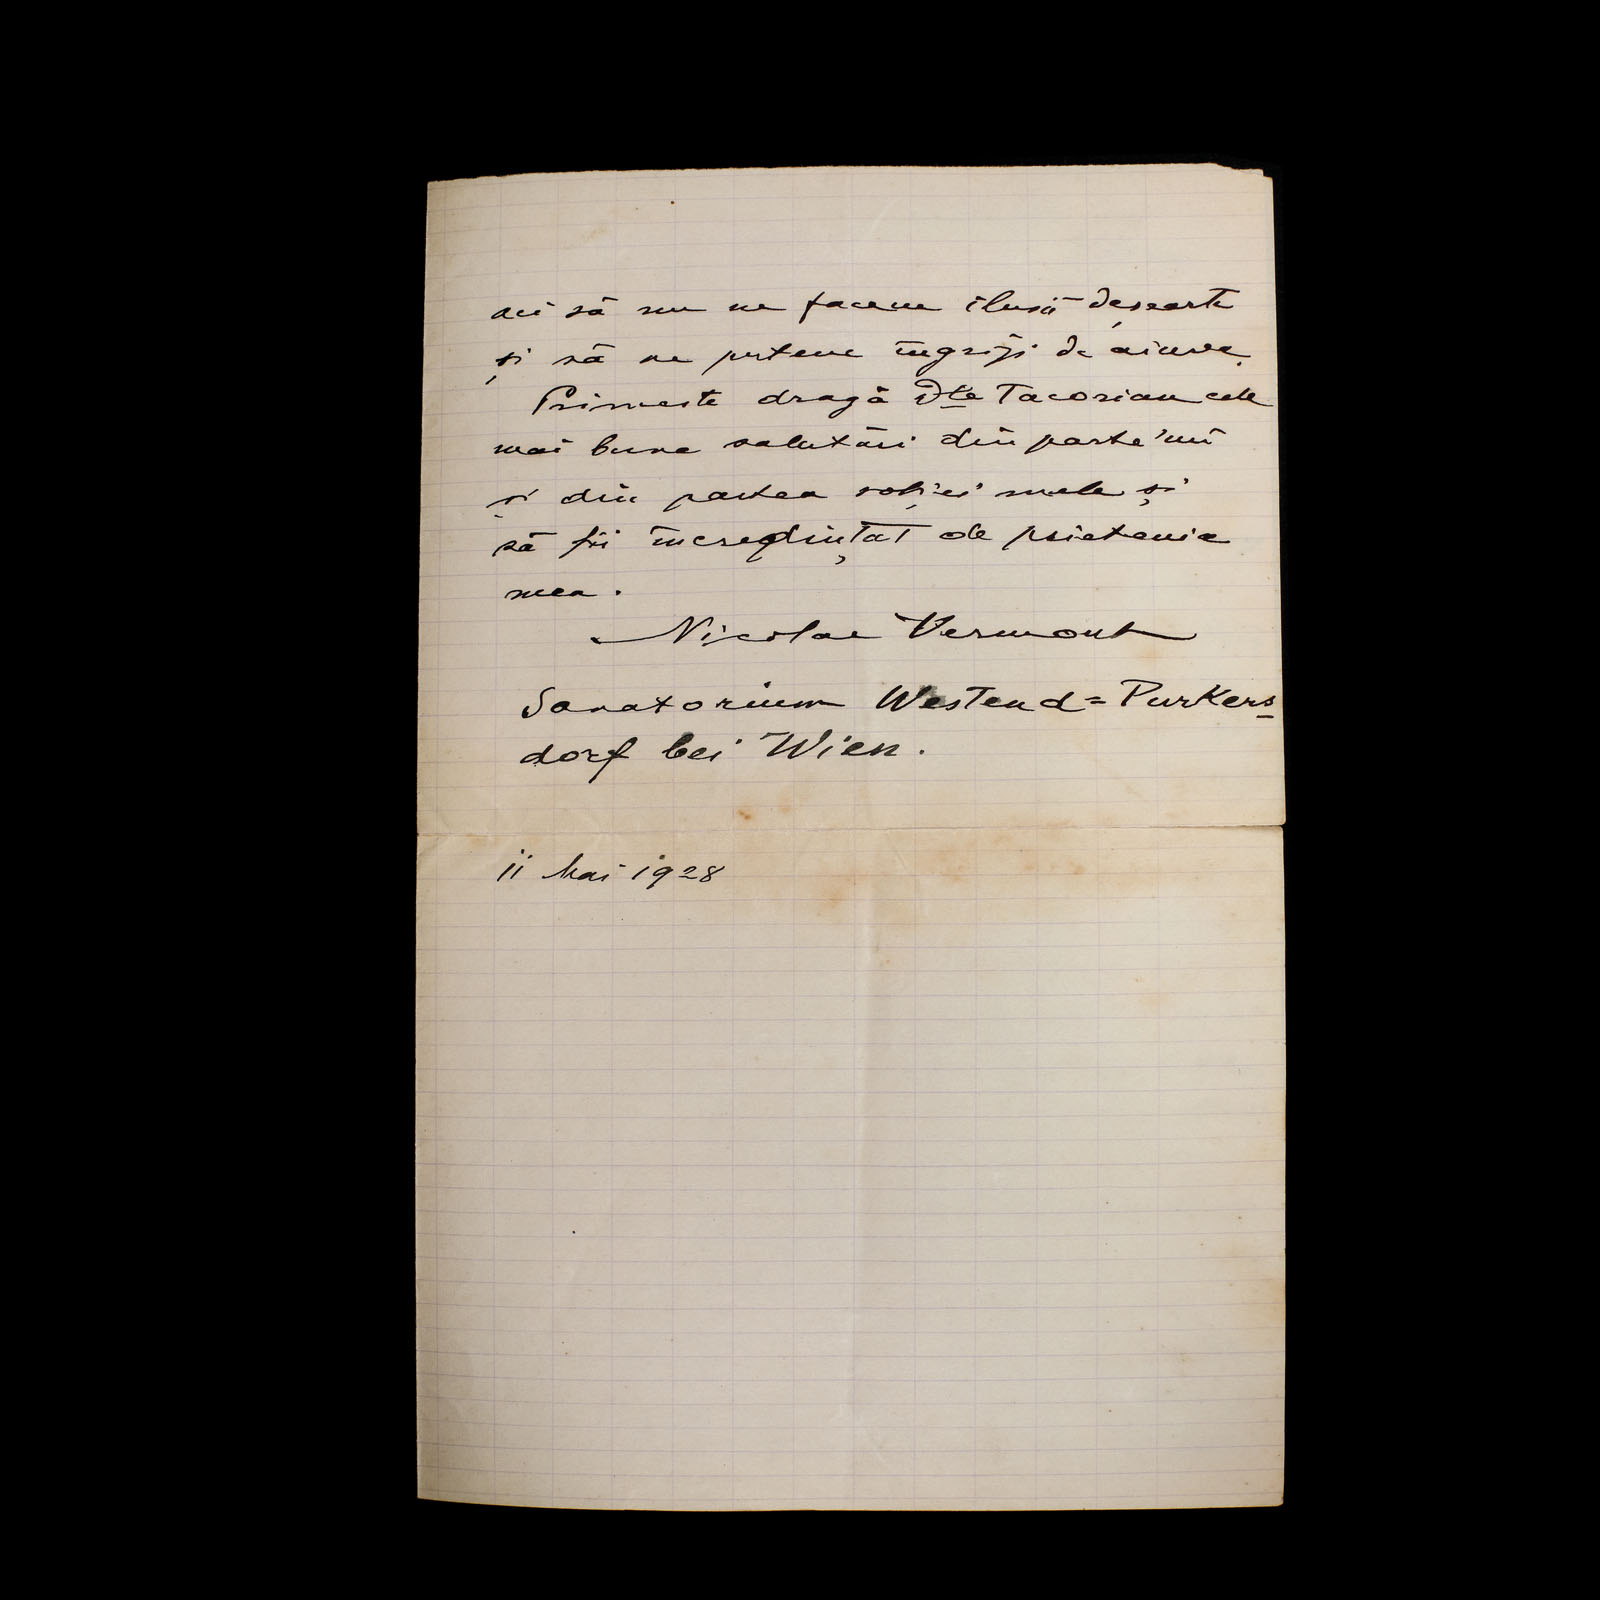 aci să nu ne facem ilusii deșearte
și să ne putem îngriji de aiurea.
Primește dragă Dle Tacorian cele
mai bune salutări din parte'mi
și din partea soției mele și
să fii încredințat de prietenia
mea.
Nicolae Vermont
Sanatorium Westend=Purkers=
dorf bei Wien.
11 Mai 1928